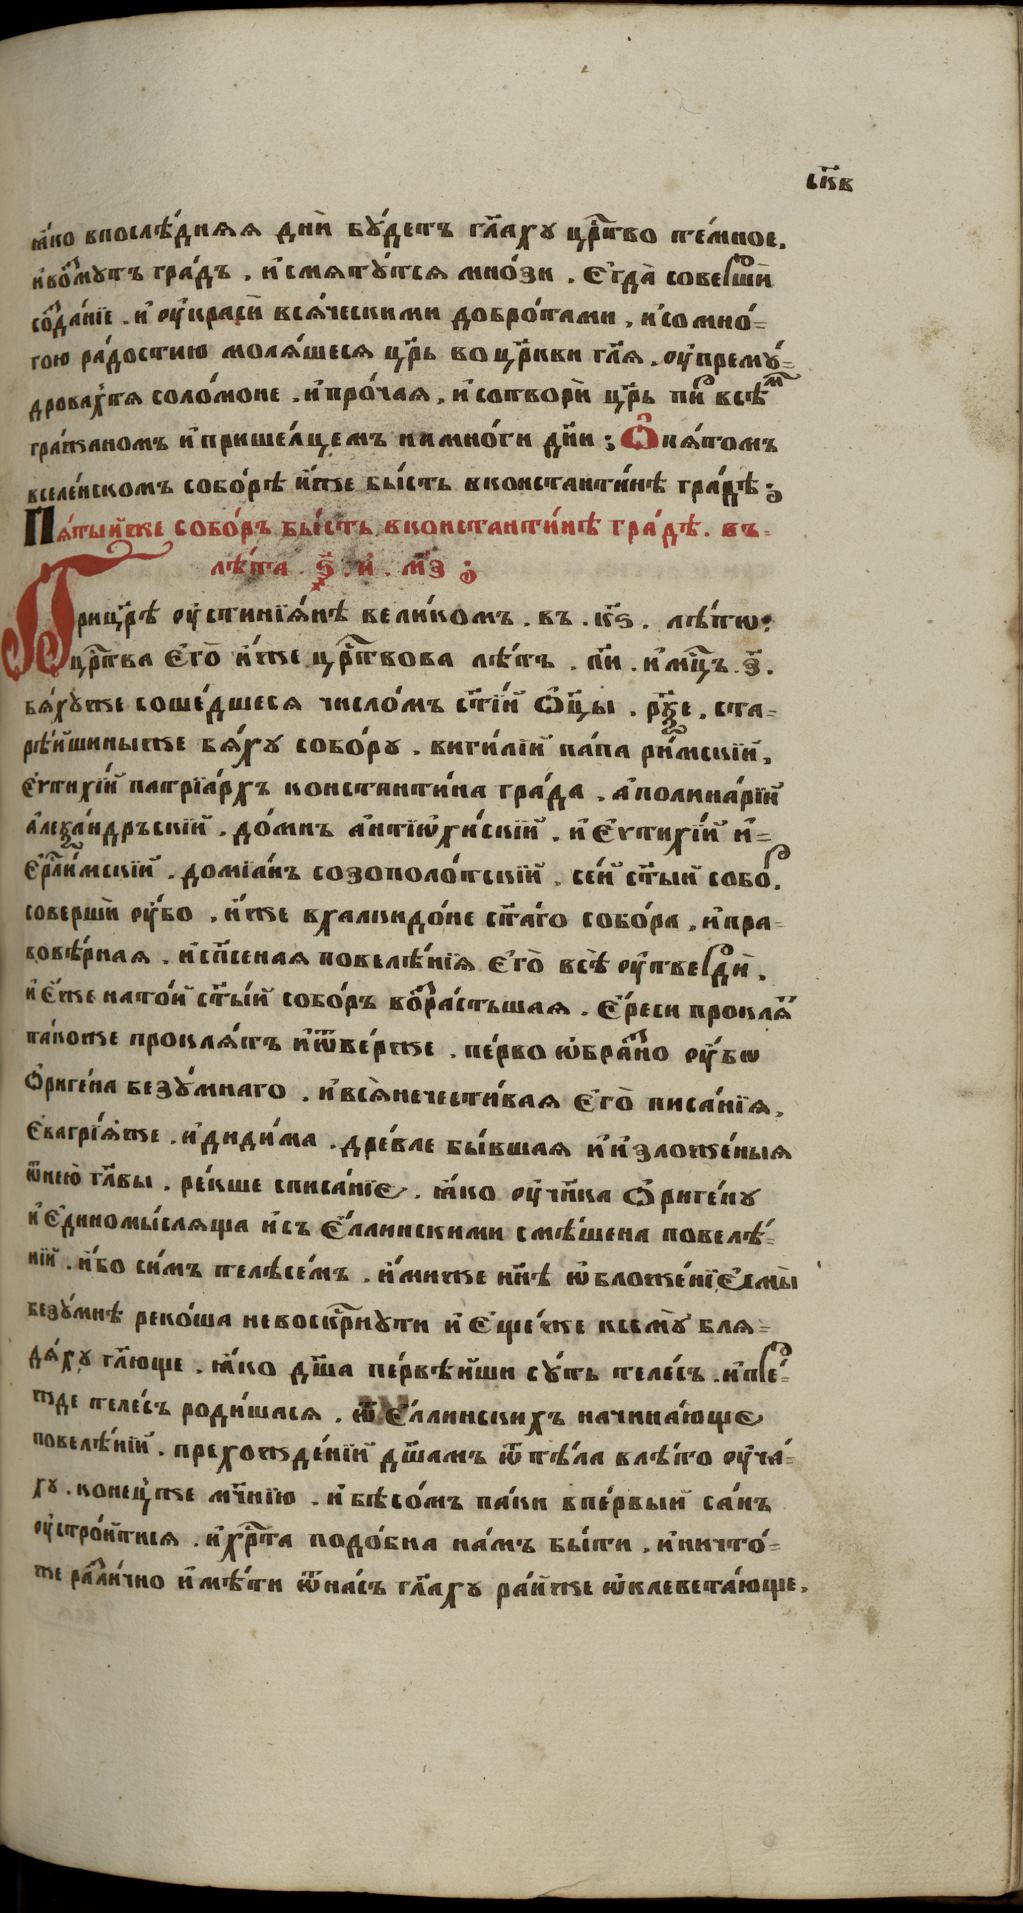 скв҃
ꙗ҆́ко впослѣ́дняя дни̑ бу́детъ гл҃аху цр҃тво те́мное.
и҆во́змутъ гра́дъ. и҆смяту́тся мно́зи. є҆гда̀ соверши́
созда́нїе. и҆ ѹ҆краси́ вся́ческими добро́тами, и҆сомно́=
гою ра́достию моля́шеся цр҃ь воцр҃кви гл҃я. ѹ҆прему́=
дровахтя соло́моне. и҆про́чая, и҆сотворѝ цр҃ь пи́р всѣ́м
гра́жаномъ и҆прише́лцемъ намно́ги дн҃и ; Ѡ҆ пя́томъ
вселе́нскомъ собо́рѣ и҆́же бы́сть вконстанти́нѣ гра́дѣ ;
Пя́тыйже собо́ръ бы́сть вконстанти́нѣ гра́дѣ. въ=
лѣ́та. ѕ҃. и҆. м҃з ;
Прицр҃ѣ ѹ҆стинїя́нѣ вели́комъ. въ. к҃ѕ. лѣ́то:
цр҃тва є҆гѡ̀ и҆́же цр҃твова лѣ́тъ. л҃и. и҆мц҃ъ. з҃.
бя́хуже соше́дшеся число́мъ ст҃і́и ѻ҆ц҃ы. рѯ҃е. ста=
рѣ́йшиныже бя́ху собо́ру. виги́лїй па́па ри́мскїй,
є҆ѵтихі́й патрїа́рхъ константи́на гра́да. а҆полина́рїй
алеѯа́ндръскїй. до́мнъ а҆нтїѡхи́йскїй. и҆ є҆ѵтихі́й и҆=
є҆рл҃и́мскїй. домїа́нъ созополо́тскїй. се́й ст҃ы́й собо́р.
соверши̑ ѹ҆́бо. и҆́же вхалкидо́не ст҃а́го собо́ра, и҆пра=
вовѣ́рная. и҆сп҃сеная повелѣ́нїя є҆гѡ̀ всѣ̀ ѹ҆твердѝ.
и҆є҆́же нато́й ст҃ы́й собо́ръ возра́стьшая. є҆́реси прокля́
та́коже прокля́тъ и҆ѿве́рже. пе́рво ѡ҆бра́зно ѹ҆́бѡ
ѻ҆риге́на безу́мнаго. и҆вся̀нечести́вая є҆гѡ̀ писа́нїя,
є҆вагрі́яже. и҆диди́ма. дре́вле бы́вшая и҆и҆зложе́ныя
ѿнею̀ гл҃вы. ре́кше списа́нїе. ꙗ҆́ко ѹ҆чн҃ка ѻ҆риге́ну
и҆є҆диномы́сляща и҆съ є҆́ллинскими смѣ́шена повелѣ́=
нїй. и҆́бо си́мъ телѣсе́мъ. и҆́миже нн҃ѣ ѡ҆бложе́нїє҆смы̀
безу́мнѣ реко́ша невоскр҃нути и҆ є҆ще́же ксему̀ бля=
дя́ху гл҃юще. ꙗ҆́ко дш҃а пе́рвѣйши су́ть теле́съ. и҆пре́=
жде теле́съ роди́шася. ѿ є҆́ллинскихъ начина́юще
повелѣ́нїй. прехожде́нїй дш҃амъ ѿ тѣ́ла влѣ́то ѹ҆ча́=
ху. коне́цже мч҃нїю. и҆ бѣсо́мъ па́ки впе́рвый са́нъ
ѹ҆стро́йтися. и҆хр҃та подо́бна на́мъ бы́ти. и҆ничто́=
же разли́чно и҆мѣ́ти ѿна́съ гл҃аху ра́йже ѡ҆клевета́юще.